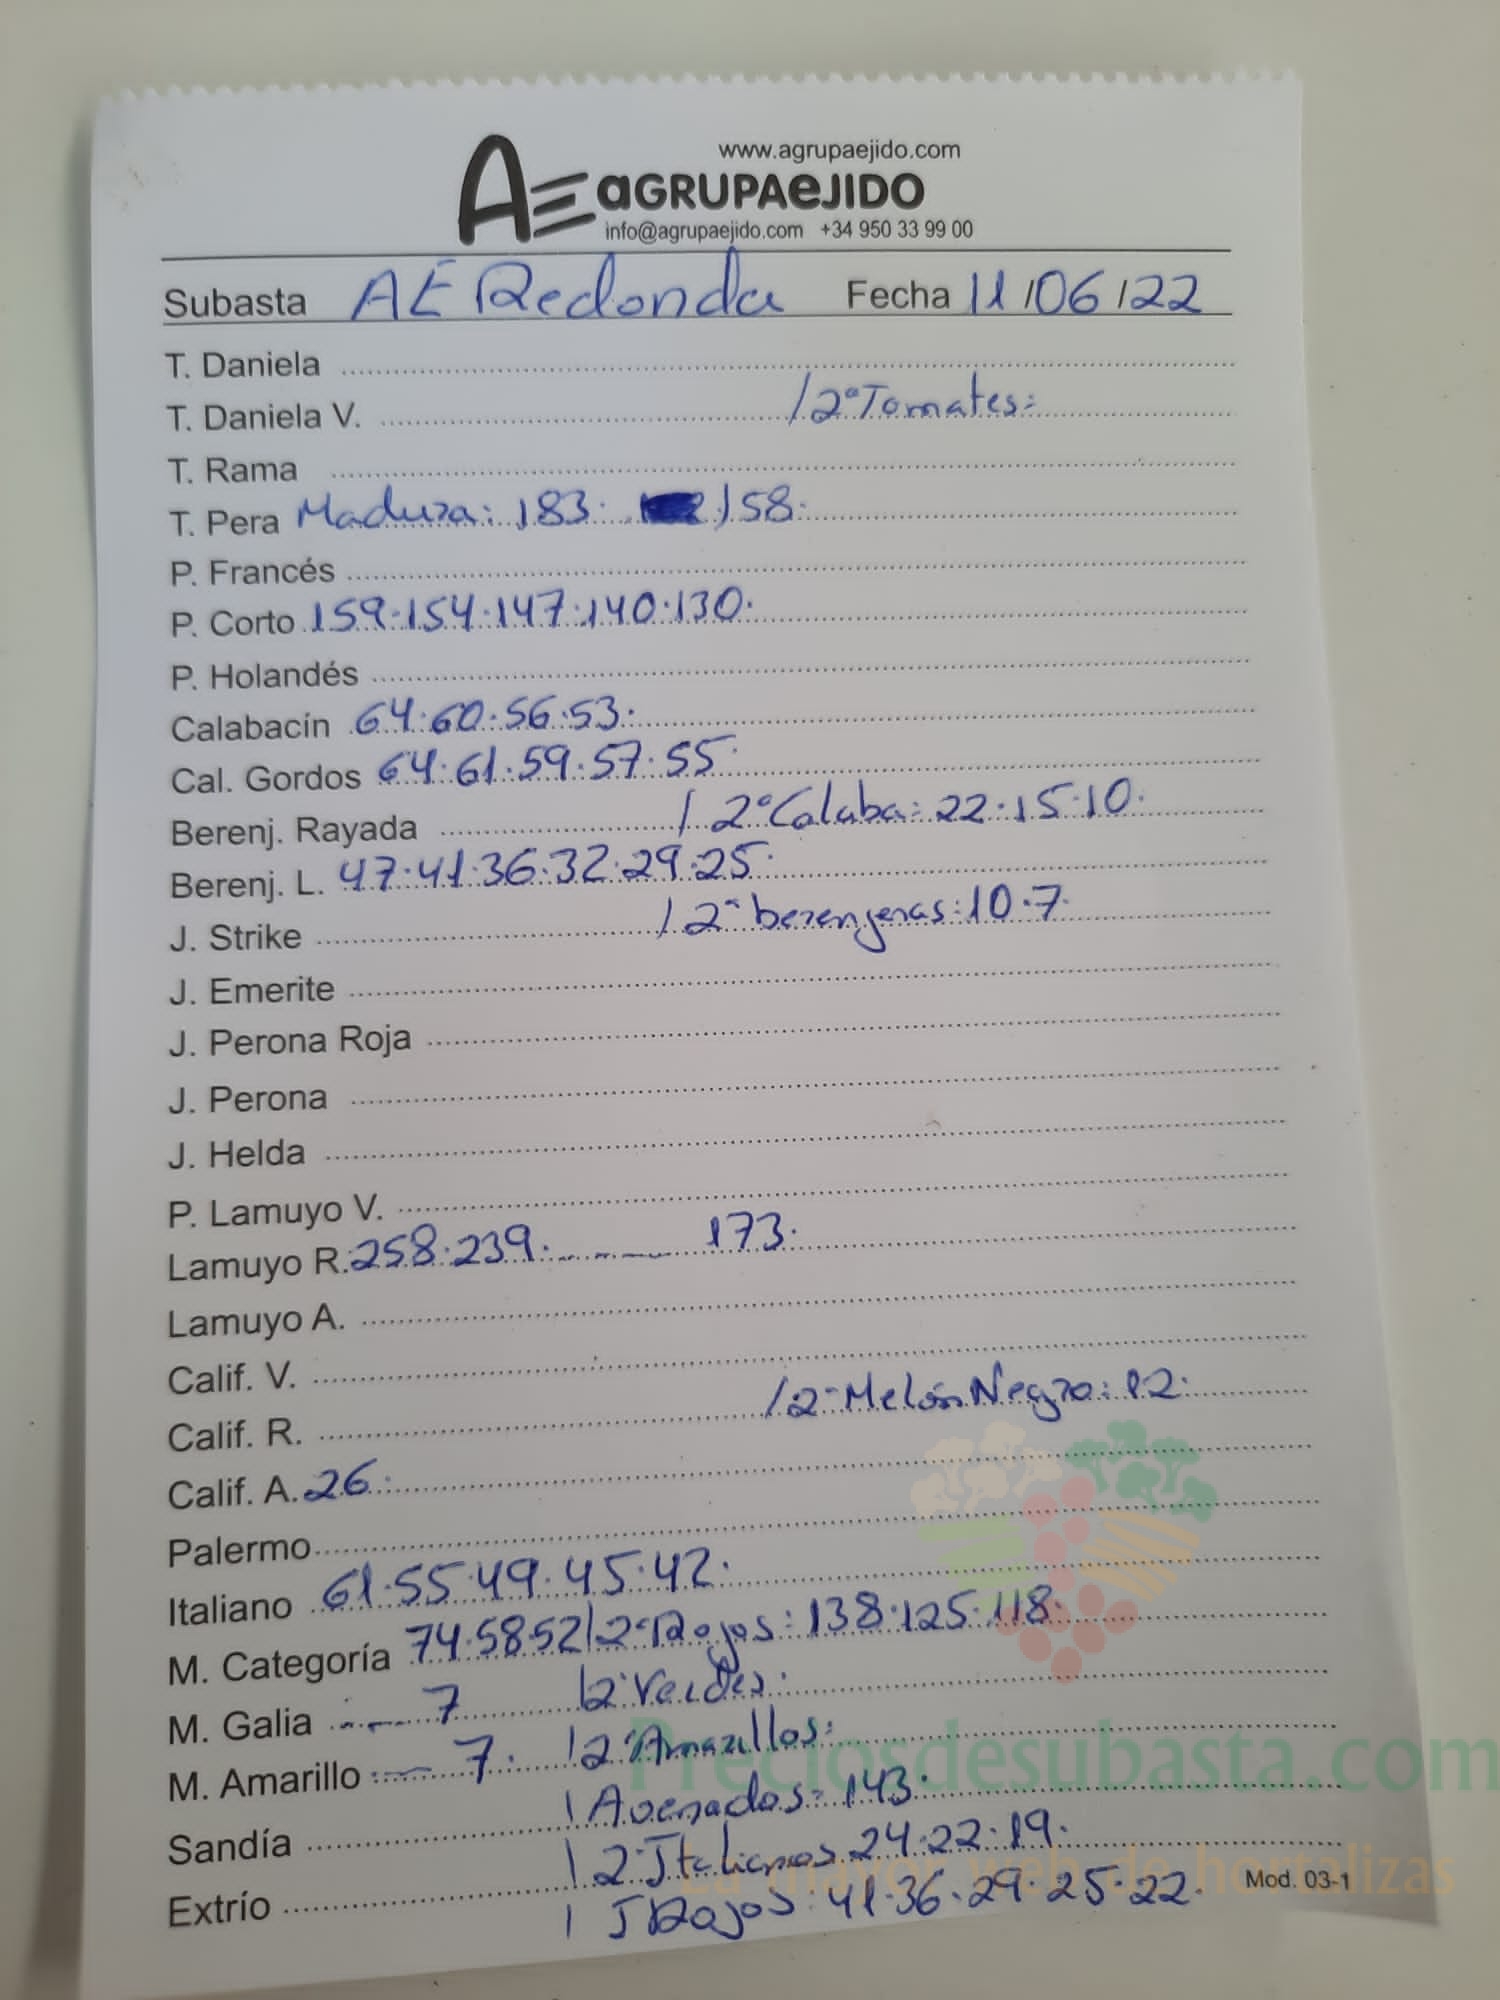 www.agrupaejido.com
AE aGRUPAeJIDO
info@agrupaejido.com +34 950 33 99 00
Subasta AE Redonda Fecha 11/06/22
T. Daniela
T. Daniela V. / 2ª Tomates:
T. Rama
T. Pera Madura: 183. 158.
P. Francés
P. Corto 159.154.147.140.130.
P. Holandés
Calabacín 64.60.56.53.
Cal. Gordos 64.61.59.57.55.
Berenj. Rayada / 2ª Calaba: 22.15.10.
Berenj. L. 47.41.36.32.29.25.
J. Strike / 2ª berenjenas: 10.7.
J. Emerite
J. Perona Roja
J. Perona
J. Helda
P. Lamuyo V.
Lamuyo R. 258.239. ------ 173.
Lamuyo A.
Calif. V.
Calif. R. / 2ª Melón Negro: 12.
Calif. A. 26.
Palermo
Italiano 61.55.49.45.42.
M. Categoría 74.58.52 / 2ª Rojos: 138.125.118.
M. Galia ---- 7 / 2ª Verdes:
M. Amarillo ---- 7. / 2ª Amarillos:
Preciosdesubasta.com
Sandía / Asenados: 143.
/ 2ª Italianos 24.22.19.
La mayor web de hortalizas
Extrío / I Rojos: 41.36.29.25.22.
Mod. 03-1